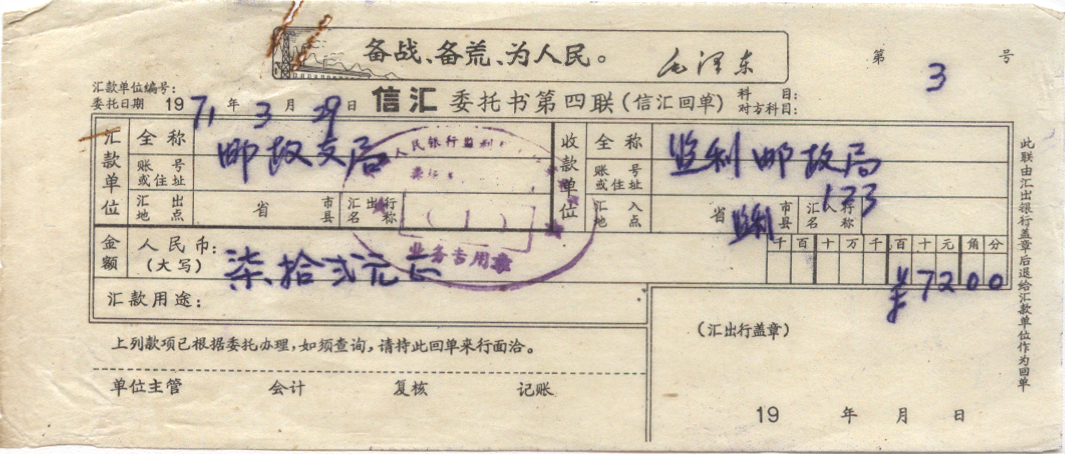 备战、备荒、为人民。 毛泽东
第 3 号
汇款单位编号：
委托日期 1971年3月29日 信汇 委托书第四联（信汇回单） 科目： 对方科目：
汇款单位 全称 邮政支局 收款单位 全称 监利邮政局
账号或住址 账号或住址 123
汇出地点 省 市县 汇出行名称 汇入地点 省 监利 市县 汇入行名称
金额 人民币：（大写） 柒拾贰元正 千百十万千百十元角分
¥7200
汇款用途：
人民银行监利
（1）
业务专用章
上列款项已根据委托办理，如须查询，请持此回单来行面洽。
（汇出行盖章）
单位主管 会计 复核 记账
19 年 月 日
此联由汇出银行盖章后退给汇款单位作为回单